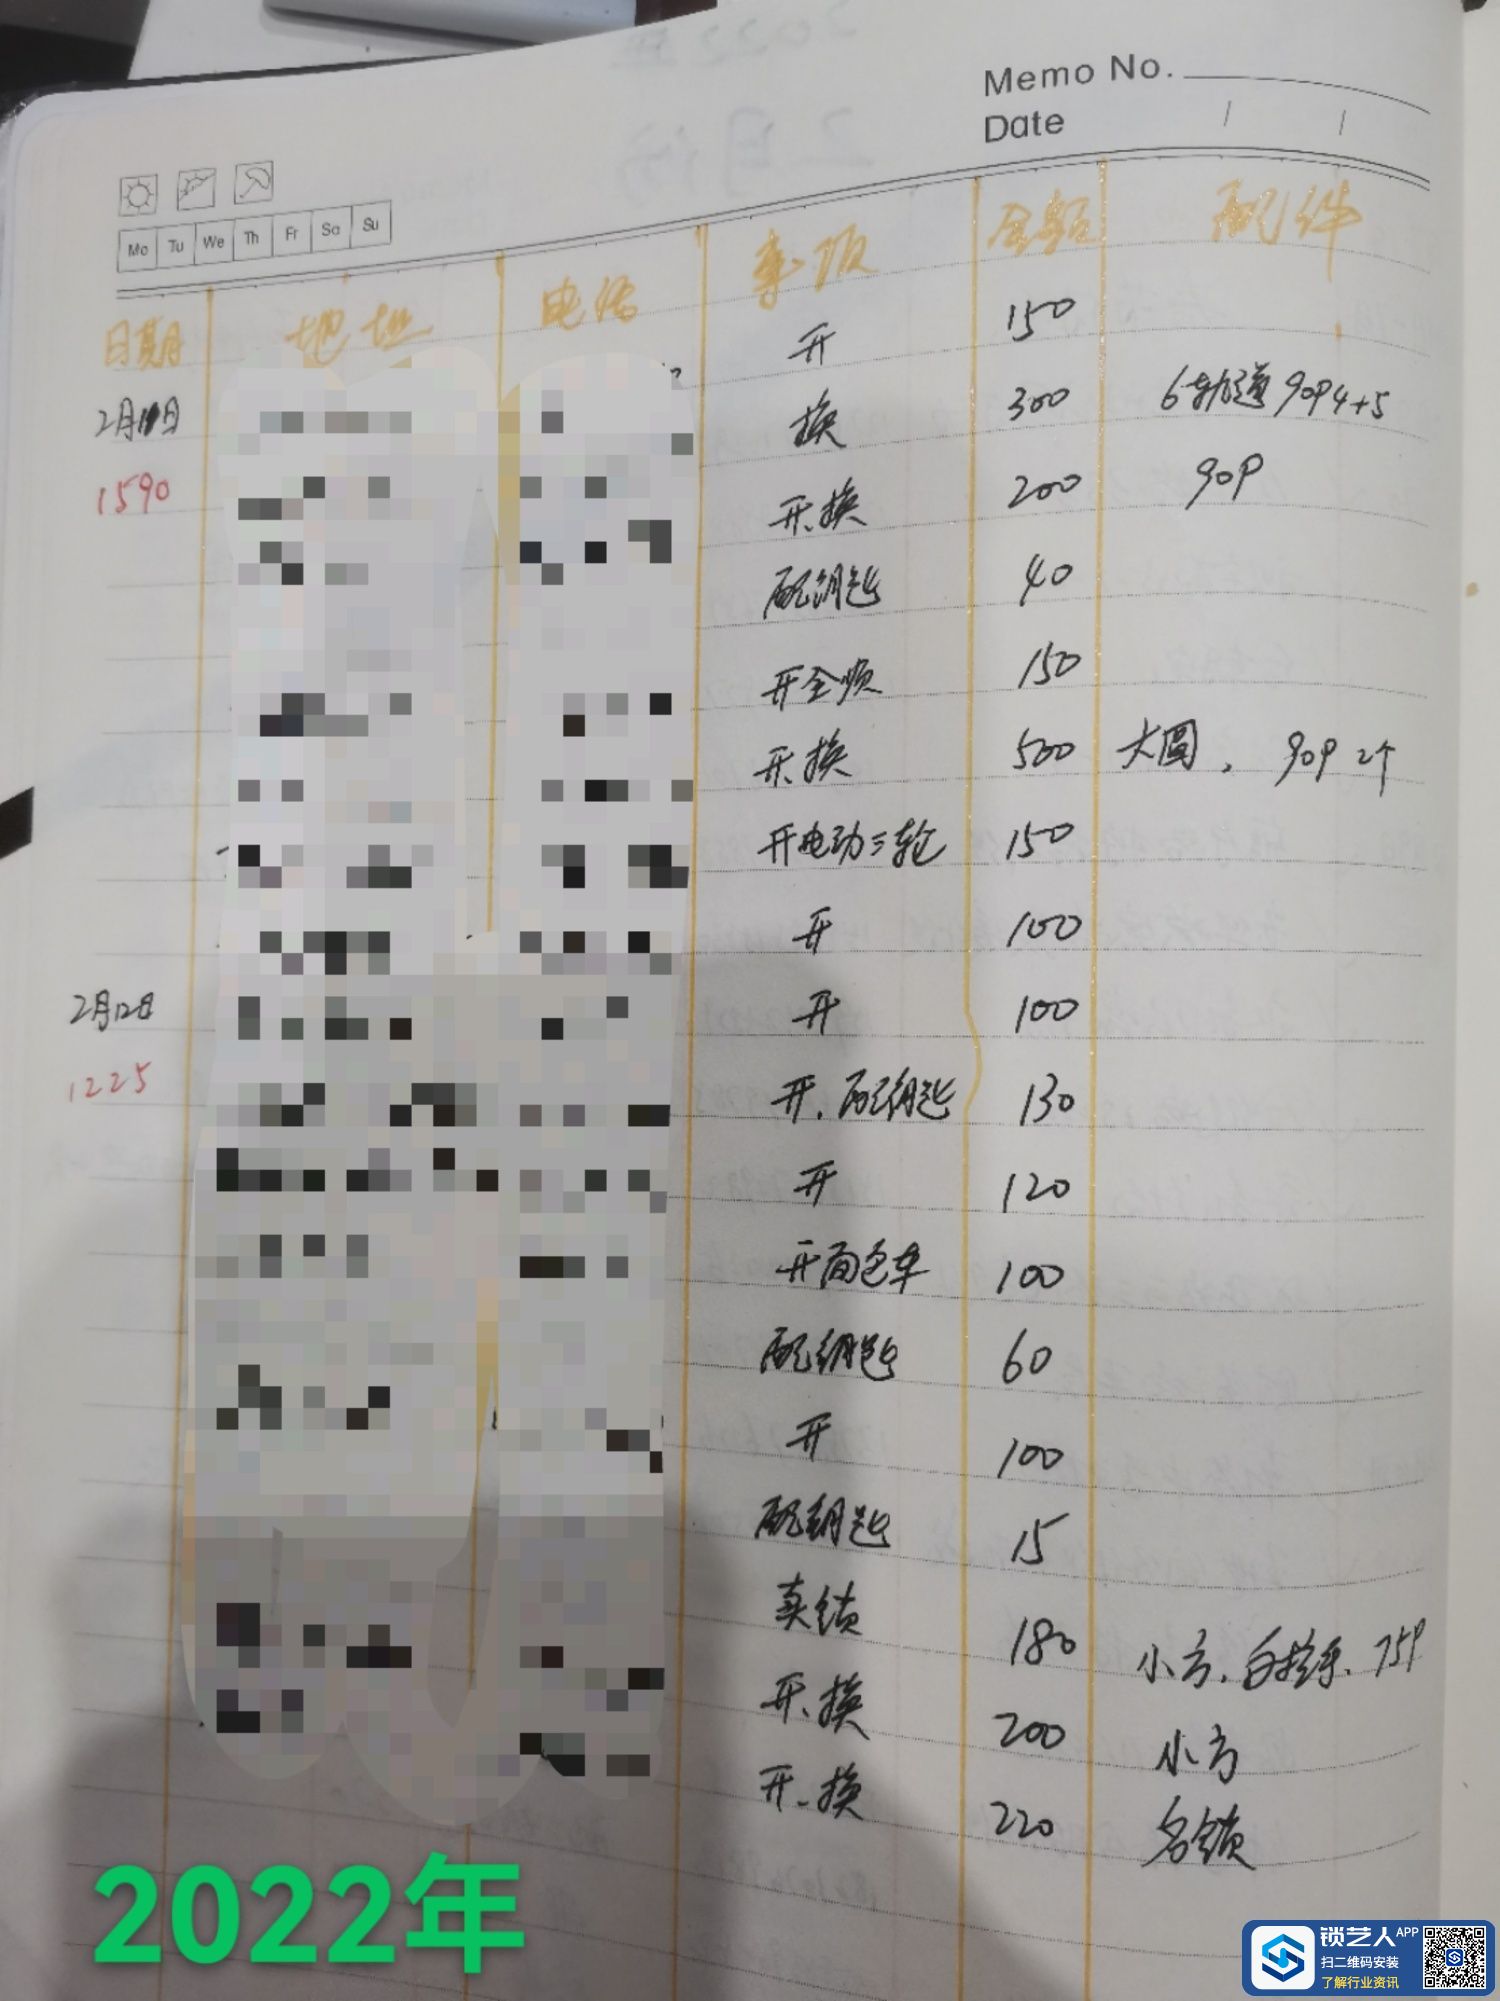 Memo No.
Date / /
Mo Tu We Th Fr Sa Su
日期 地址 电话 事项 金额 配件
开 150
2月11日 换 300 6轨道90P4+5
1590 开.换 200 90P
配钥匙 40
开全顺 150
开.换 500 大圆, 90P 2个
开电动三轮 150
开 100
2月12日 开 100
1225 开.配钥匙 130
开 120
开面包车 100
配钥匙 60
开 100
配钥匙 15
卖锁 180 小方.白拉手.75P
开.换 200 小方
开.换 220 名锁
2022年
锁艺人APP
扫二维码安装
了解行业资讯